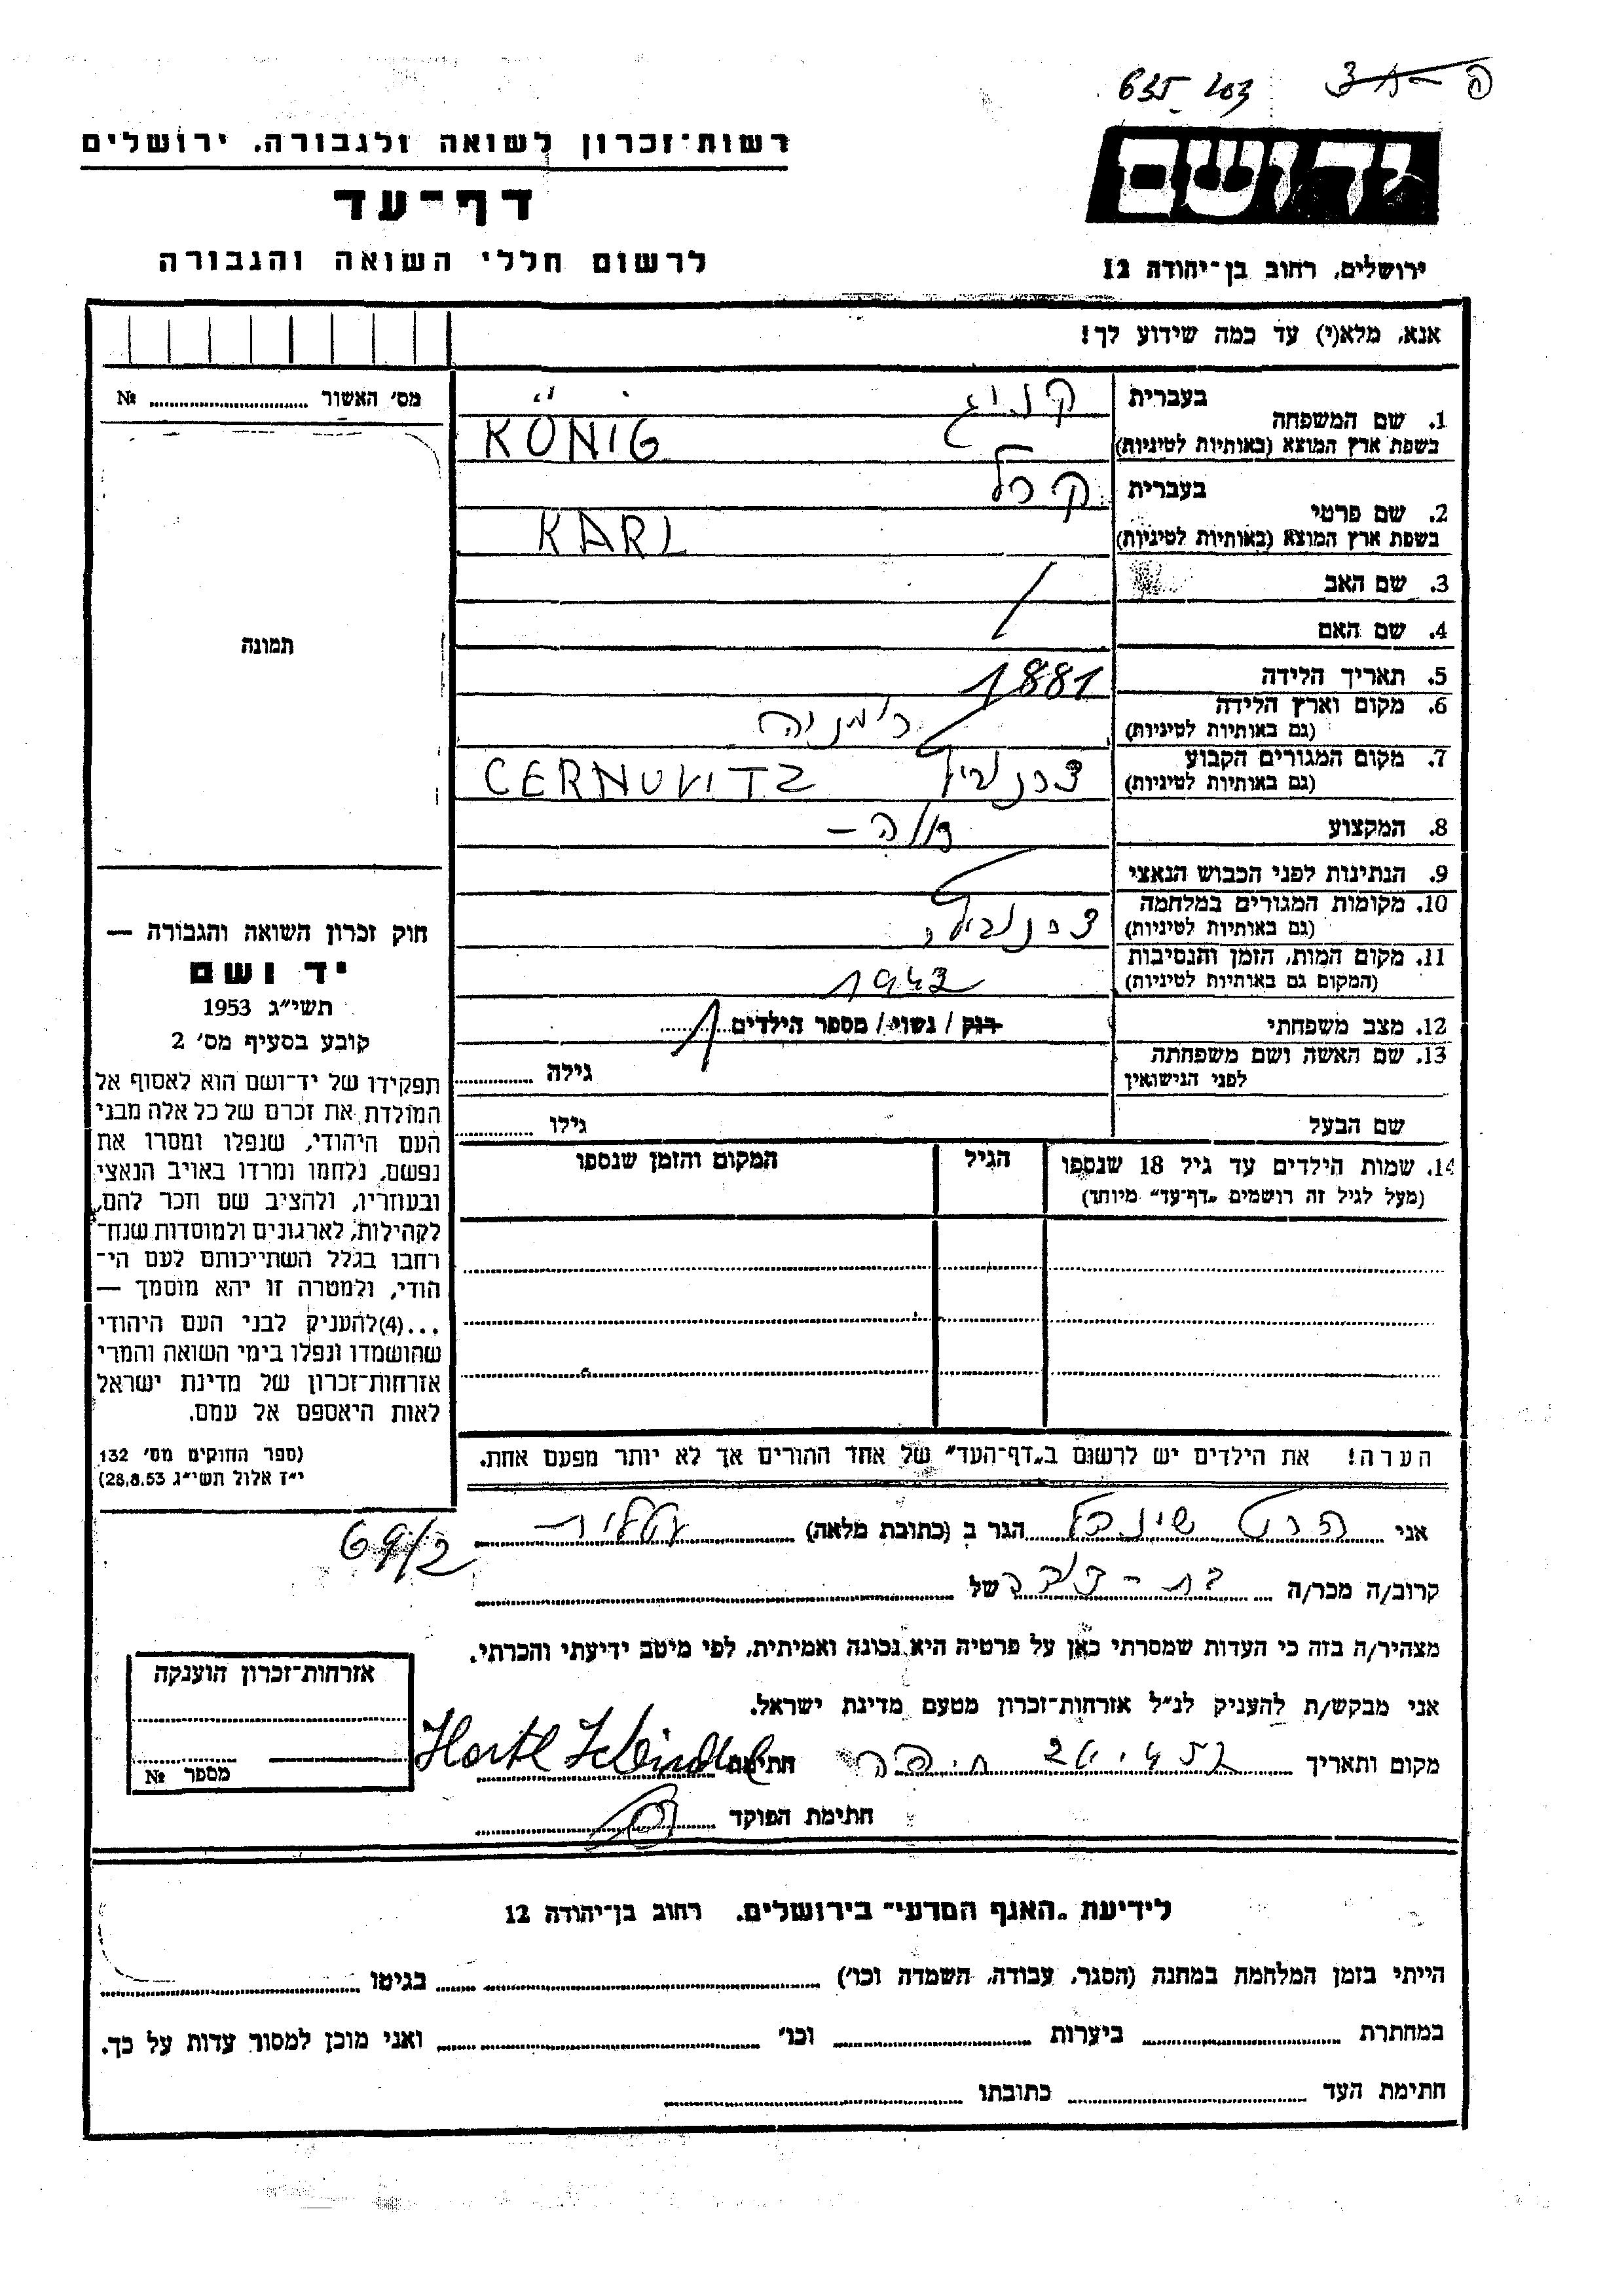 635-203
רשות־זכרון לשואה ולגבורה, ירושלים
יד ושם
דף־עד
לרשום חללי השואה והגבורה
ירושלים, רחוב בן־יהודה 12
אנא, מלא(י) עד כמה שידוע לך!
מס׳ האשור № 
תמונה
1. שם המשפחה
בעברית קניג
בשפת ארץ המוצא (באותיות לטיניות) KÖNIG
2. שם פרטי
בעברית קרל
בשפת ארץ המוצא (באותיות לטיניות) KARL
3. שם האב
4. שם האם
5. תאריך הלידה 1881
6. מקום וארץ הלידה
(גם באותיות לטיניות) רומניה
7. מקום המגורים הקבוע
(גם באותיות לטיניות) CERNOVITZ
8. המקצוע
9. הנתינות לפני הכבוש הנאצי
10. מקומות המגורים במלחמה
(גם באותיות לטיניות)
11. מקום המות, הזמן והנסיבות
(המקום גם באותיות לטיניות) 1942
12. מצב משפחתי רוק / נשוי / מספר הילדים 1
13. שם האשה ושם משפחתה
לפני הנישואין גילה
שם הבעל גילו
14. שמות הילדים עד גיל 18 שנספו הגיל המקום והזמן שנספו
(מעל לגיל זה רושמים „דף־עד״ מיוחד)
חוק זכרון השואה והגבורה —
יד ושם
תשי״ג 1953
קובע בסעיף מס׳ 2
תפקידו של יד־ושם הוא לאסוף אל
המולדת את זכרם של כל אלה מבני
העם היהודי, שנפלו ומסרו את
נפשם, נלחמו ומרדו באויב הנאצי
ובעוזריו, ולהציב שם וזכר להם,
לקהילות, לארגונים ולמוסדות שנח־
רחבו בגלל השתייכותם לעם הי־
הודי, ולמטרה זו יהא מוסמך —
...(4)להעניק לבני העם היהודי
שהושמדו ונפלו בימי השואה והמרי
אזרחות־זכרון של מדינת ישראל
לאות היאספם אל עמם.
(ספר החוקים מס׳ 132
י״ז אלול תשי״ג 28.8.53)
הערה! את הילדים יש לרשום ב„דף־העד״ של אחד ההורים אך לא יותר מפעם אחת.
69/2
אני הרטל שינדל הגר ב (כתובת מלאה) עטלית
קרוב/ה מכר/ה של
מצהיר/ה בזה כי העדות שמסרתי כאן על פרטיה היא נכונה ואמיתית, לפי מיטב ידיעתי והכרתי.
אני מבקש/ת להעניק לנ״ל אזרחות־זכרון מטעם מדינת ישראל.
מקום ותאריך חיפה חתימה Hertl Scheindel
חתימת הפוקד
אזרחות־זכרון הוענקה
מספר №
לידיעת „האגף המדעי״ בירושלים, רחוב בן־יהודה 12
הייתי בזמן המלחמה במחנה (הסגר, עבודה, השמדה וכו׳) בגיטו
במחתרת ביערות וכו׳ ואני מוכן למסור עדות על כך.
חתימת העד כתובתו